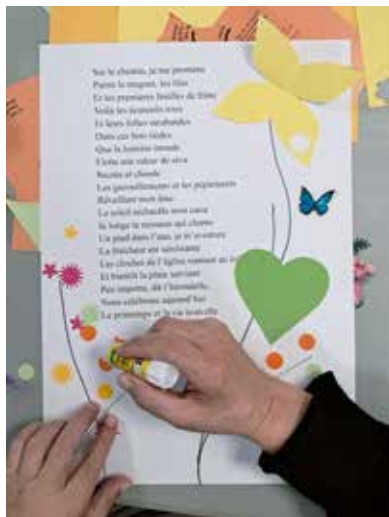 Sur le chemin, je me promène
Parmi le muguet, les lilas
Et les premières feuilles de frêne
Voilà les écureuils roux
Et leurs folles sarabandes
Dans ces bois tièdes
Que la lumière inonde
Flotte une odeur de
Sucrée et chaude
Les gazouillements et les pépiements
Réveillent mon âme
Le soleil réchauffe mon cœur
Je longe le ruisseau qui chante
Un pied dans l'eau, je m'aventure
La fraîcheur est saisissante
Les cloches de l'église sonnent au
Et bientôt la pluie survient
Peu importe, dit l'hirondelle,
Nous célébrons aujourd'hui
Le printemps et la vie nouvelle